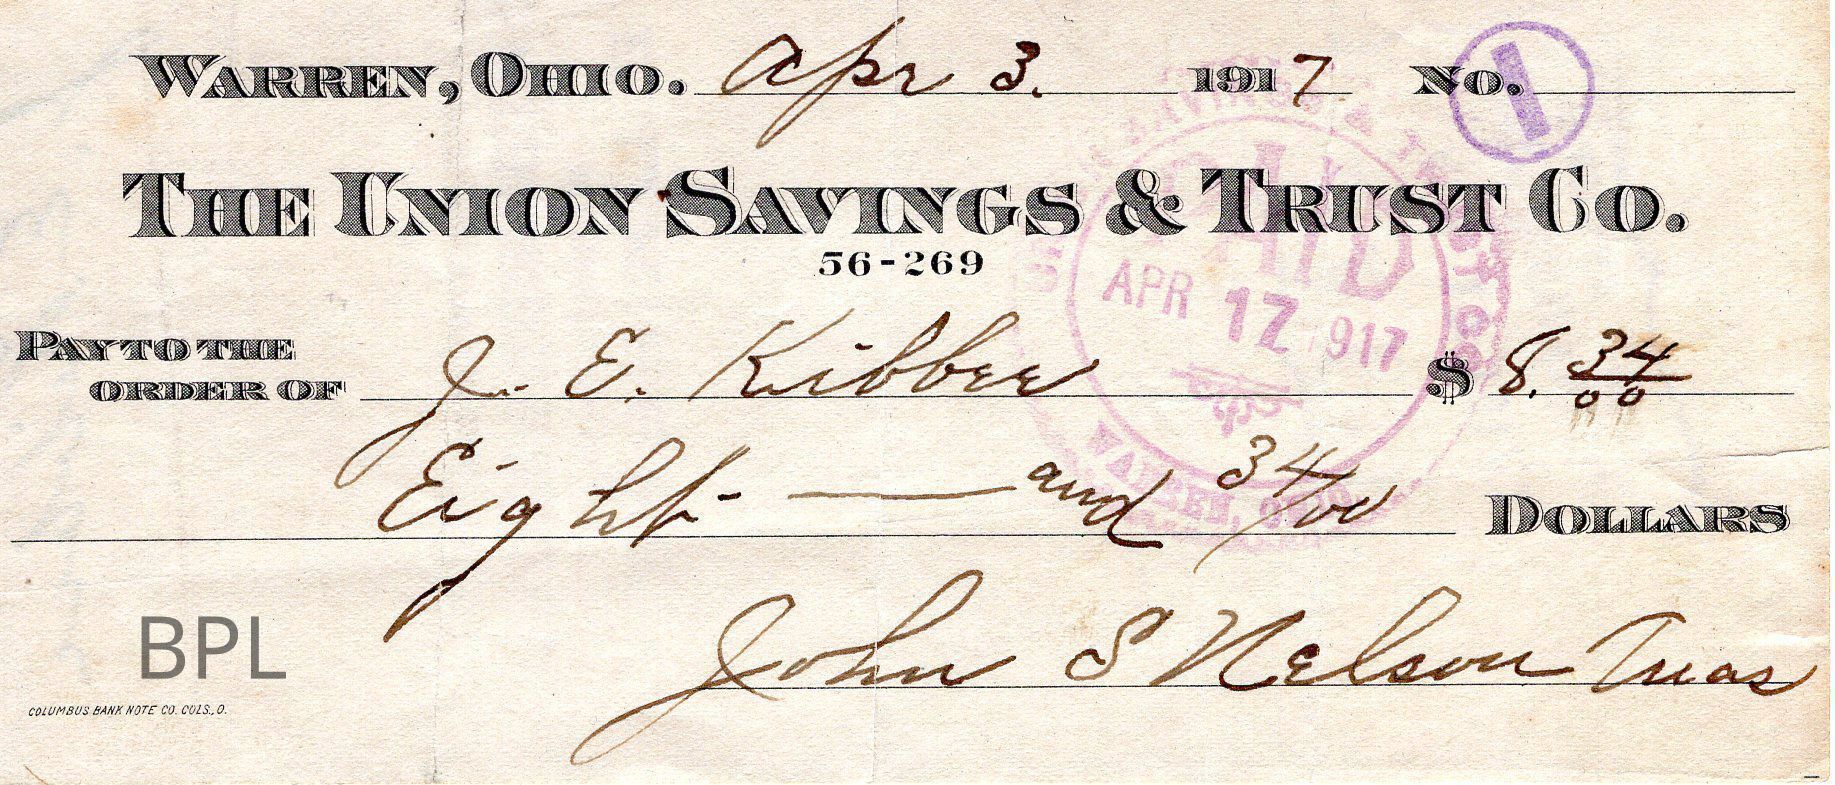 WARREN, OHIO. Apr 3. 1917 No. 1
THE UNION SAVINGS & TRUST CO.
56-269
PAY TO THE
ORDER OF J. E. Kibbee $ 8. 34/00
Eight - and 34/00 DOLLARS
John S Nelson Treas
BPL
COLUMBUS BANK NOTE CO. COLS., O.
UNION SAVINGS & TRUST CO.
PAID
APR 17 1917
WARREN, OHIO